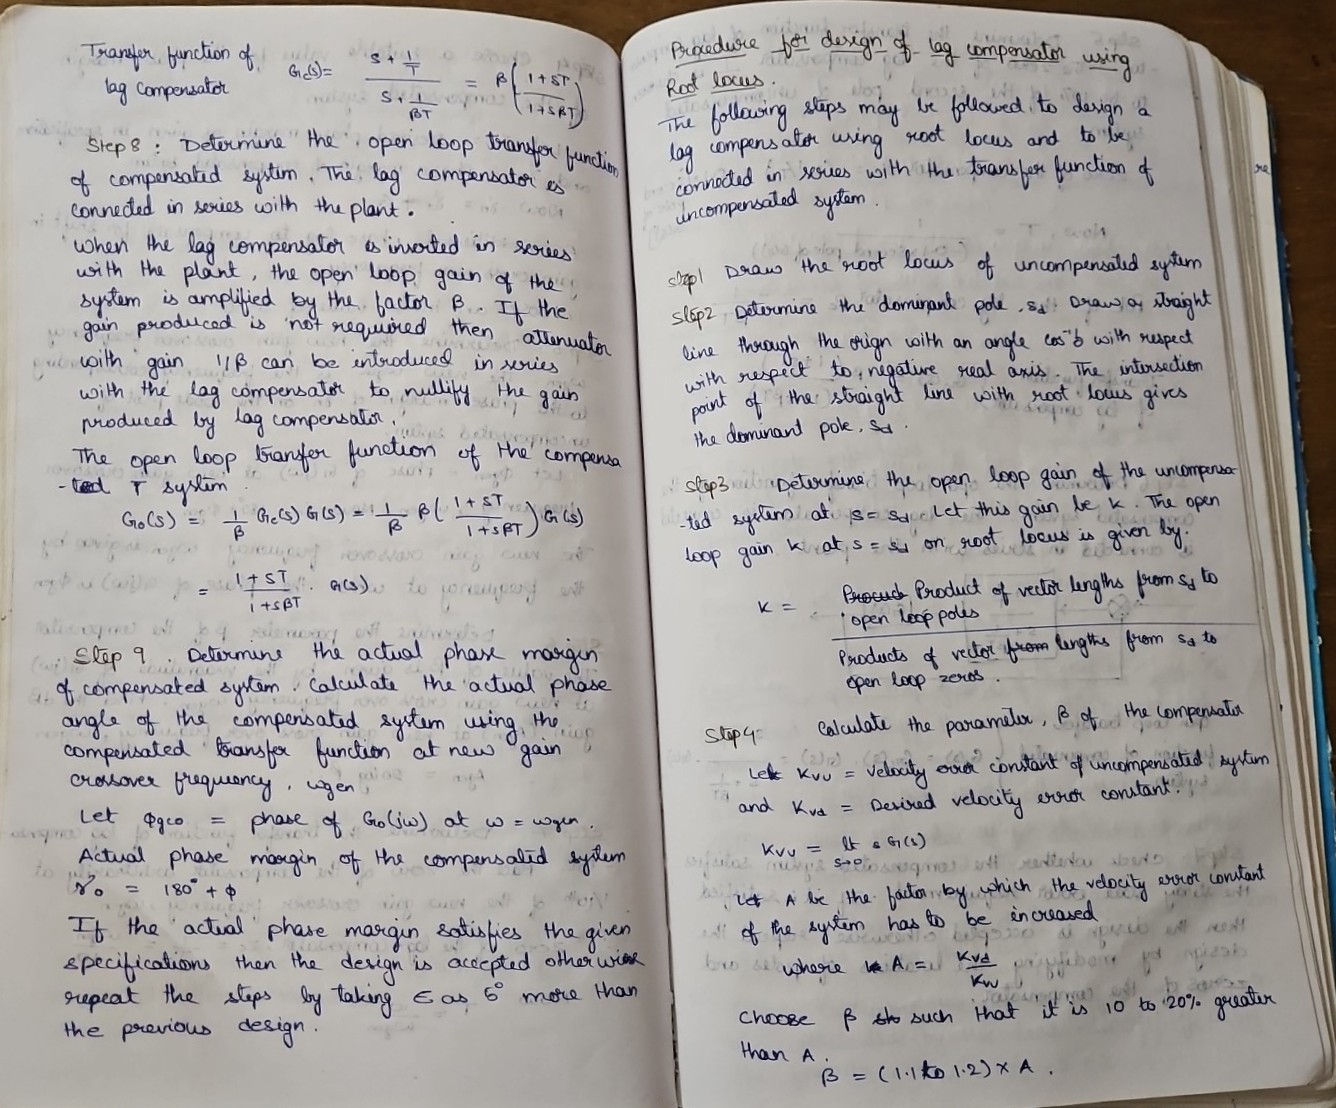 Transfer function of
lag compensator Gc(s) = (s + 1/T) / (s + 1/βT) = β((1+sT)/(1+sβT))
Step 8 : Determine the open loop transfer function
of compensated system. The lag compensator is
connected in series with the plant.
when the lag compensator is inserted in series
with the plant, the open loop gain of the
system is amplified by the factor β. If the
gain produced is not required then attenuator
with gain 1/β can be introduced in series
with the lag compensator to nullify the gain
produced by lag compensator.
The open loop transfer function of the compensa
-ted T system
Go(s) = 1/β Gc(s) G(s) = 1/β β((1+sT)/(1+sβT)) G(s)
= (1+sT)/(1+sβT) . G(s)
Step 9 . Determine the actual phase margin
of compensated system. calculate the actual phase
angle of the compensated system using the
compensated transfer function at new gain
crossover frequency, wgcn.
Let Φgco = phase of Go(jω) at ω = ωgcn.
Actual phase margin of the compensated system
γo = 180° + ϕ
If the actual phase margin satisfies the given
specifications then the design is accepted otherwise
repeat the steps by taking ε as 5° more than
the previous design.
Procedure for design of lag compensator using
Root locus.
The following steps may be followed to design a
lag compensator using root locus and to be
connected in series with the transfer function of
uncompensated system.
Step1 Draw the root locus of uncompensated system
Step2 Determine the dominant pole, sd. Draw a straight
line through the orign with an angle cos⁻¹δ with respect
with respect to negative real axis. The intersection
point of the straight line with root locus gives
the dominant pole, Sd.
Step3 Determine the open loop gain of the uncompensa
-ted system at s = sd. Let this gain be k. The open
loop gain k at s = sd on root locus is given by.
K = Product of vector lengths from sd to
open loop poles
Products of vector from lengths from sd to
open loop zeros.
Step4: Calculate the parameter, β of the compensator
Let Kvu = Velocity error constant of uncompensated system
and Kvd = Desired velocity error constant.
Kvu = lt s→0 s G(s)
Let A be the factor by which the velocity error constant
of the system has to be increased
where A = Kvd/Kvu
Choose β such that it is 10 to 20% greater
than A.
β = (1.1 to 1.2) x A .